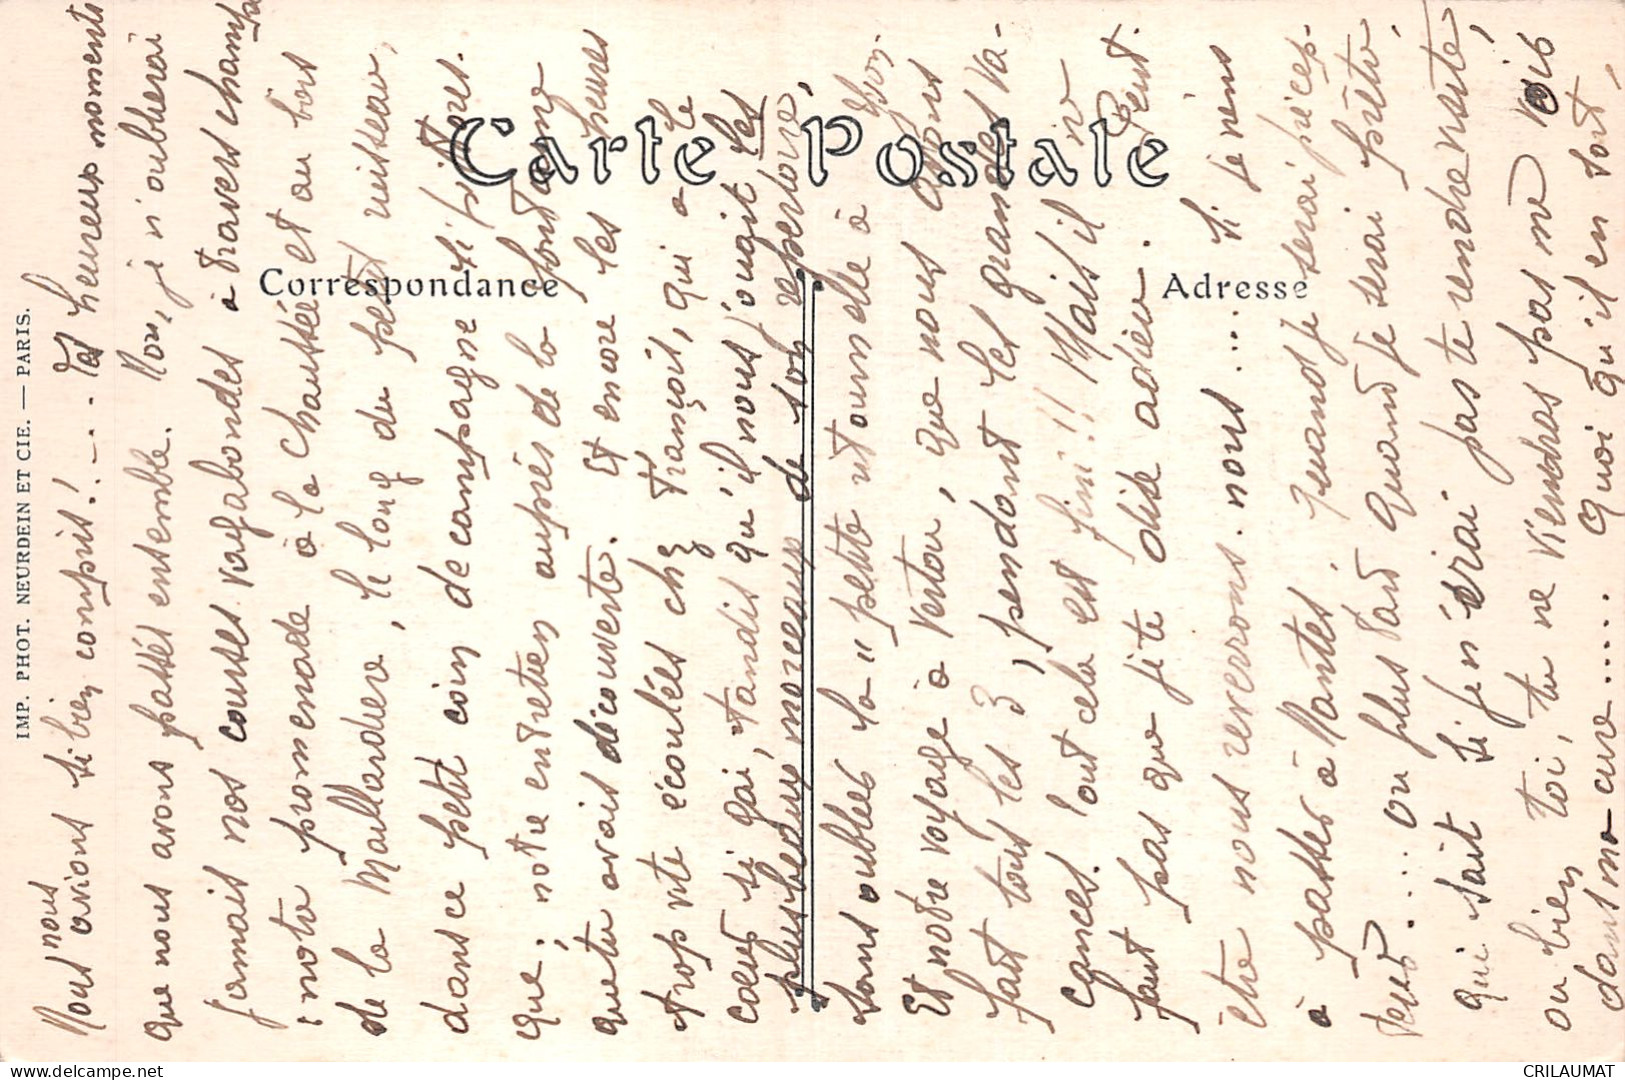 Carte Postale
Correspondance
Adresse
IMP. PHOT. NEURDEIN ET CIE. — PARIS.
Nous nous avions si bien compris!... les heureux moments
que nous avons passés ensemble. Non, je n'oublierai
jamais nos courses vagabondes à travers champs
: notre promenade à la chaussée et au bois
de la Maillardière, le long du petit ruisseau,
dans ce petit coin de campagne si
que; notre entretien auprès de la fontaine
que tu avais découverte. Et encore les heures
trop vite écoulées chez François, qui a le
coeur si gai, tandis qu'il nous jouait les
plus beaux morceaux de son répertoire,
sans oublier la "petite
Et notre voyage à Vertou, que nous avons
fait tous les 3, pendant les grandes va-
cances. Tout cela est fini!! Mais il ne
faut pas que je te dise adieu.
être nous reverrons nous... si je viens
à passer à Nantes, quand je serai
teur... ou plus tard quand je serai prêtre.
qui sait si je n'irai pas te rendre visite,
ou bien toi, tu ne viendras pas me voir
dans ma cure.... Quoi qu'il en soit,
CRILAUMAT